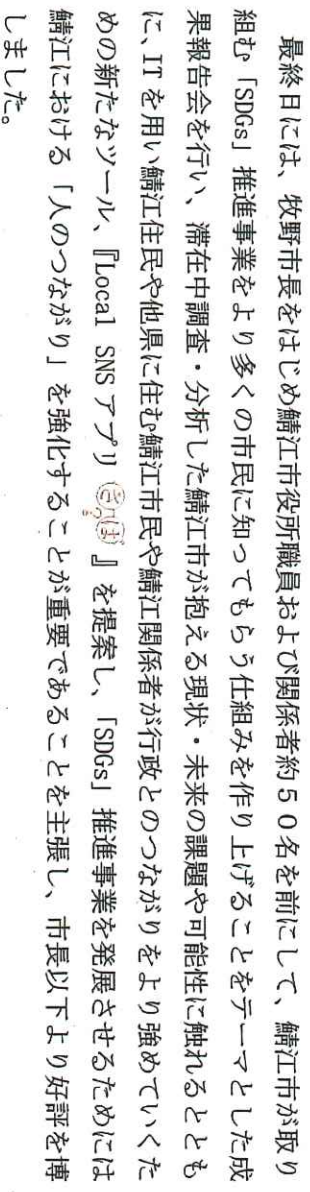 最終日には、牧野市長をはじめ鯖江市役所職員および関係者約50名を前にして、鯖江市が取り
組む「SDGs」推進事業をより多くの市民に知ってもらう仕組みを作り上げることをテーマとした成
果報告会を行い、滞在中調査・分析した鯖江市が抱える現状・未来の課題や可能性に触れるととも
に、ITを用い鯖江住民や他県に住む鯖江市民や鯖江関係者が行政とのつながりをより強めていくた
めの新たなツール、『Local SNSアプリ ざっぱ』を提案し、「SDGs」推進事業を発展させるためには
鯖江における「人のつながり」を強化することが重要であることを主張し、市長以下より好評を博
しました。